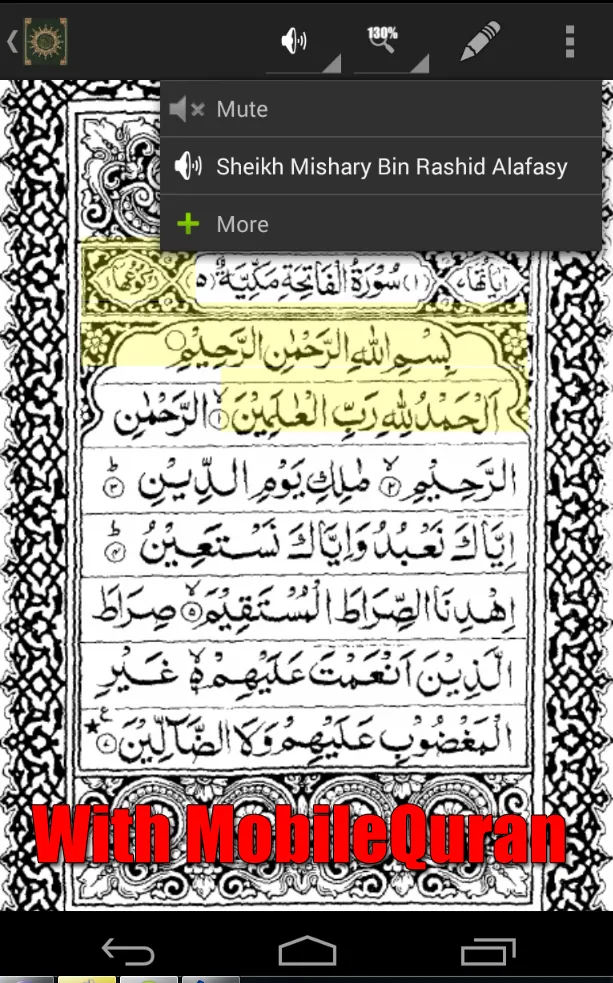 130%
Mute
Sheikh Mishary Bin Rashid Alafasy
More
اٰیَاتُهَا ۷ (۱) سُوْرَةُ الْفَاتِحَةِ مَكِّیَّةٌ (۵) رُكُوْعُهَا ۱
بِسْمِ اللهِ الرَّحْمٰنِ الرَّحِیْمِ
اَلْحَمْدُ لِلّٰهِ رَبِّ الْعٰلَمِیْنَ ۙ﴿۱﴾ الرَّحْمٰنِ
الرَّحِیْمِ ۙ﴿۲﴾ مٰلِكِ یَوْمِ الدِّیْنِ ؕ﴿۳﴾
اِیَّاكَ نَعْبُدُ وَ اِیَّاكَ نَسْتَعِیْنُ ؕ﴿۴﴾
اِهْدِنَا الصِّرَاطَ الْمُسْتَقِیْمَ ۙ﴿۵﴾ صِرَاطَ
الَّذِیْنَ اَنْعَمْتَ عَلَیْهِمْ ۙ۬﴿۶﴾ غَیْرِ
الْمَغْضُوْبِ عَلَیْهِمْ وَلَا الضَّآلِّیْنَ ﴿۷﴾ ع
With MobileQuran